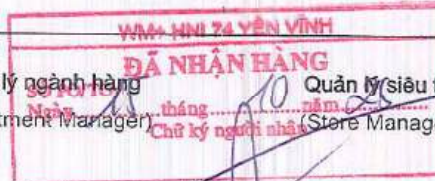 WM+ HNI 74 YÊN VĨNH
ĐÃ NHẬN HÀNG
lý ngành hàng
Quản lý siêu t
Ngày 18 tháng 10 năm
tment Manager)
Chữ ký người nhận
(Store Manag